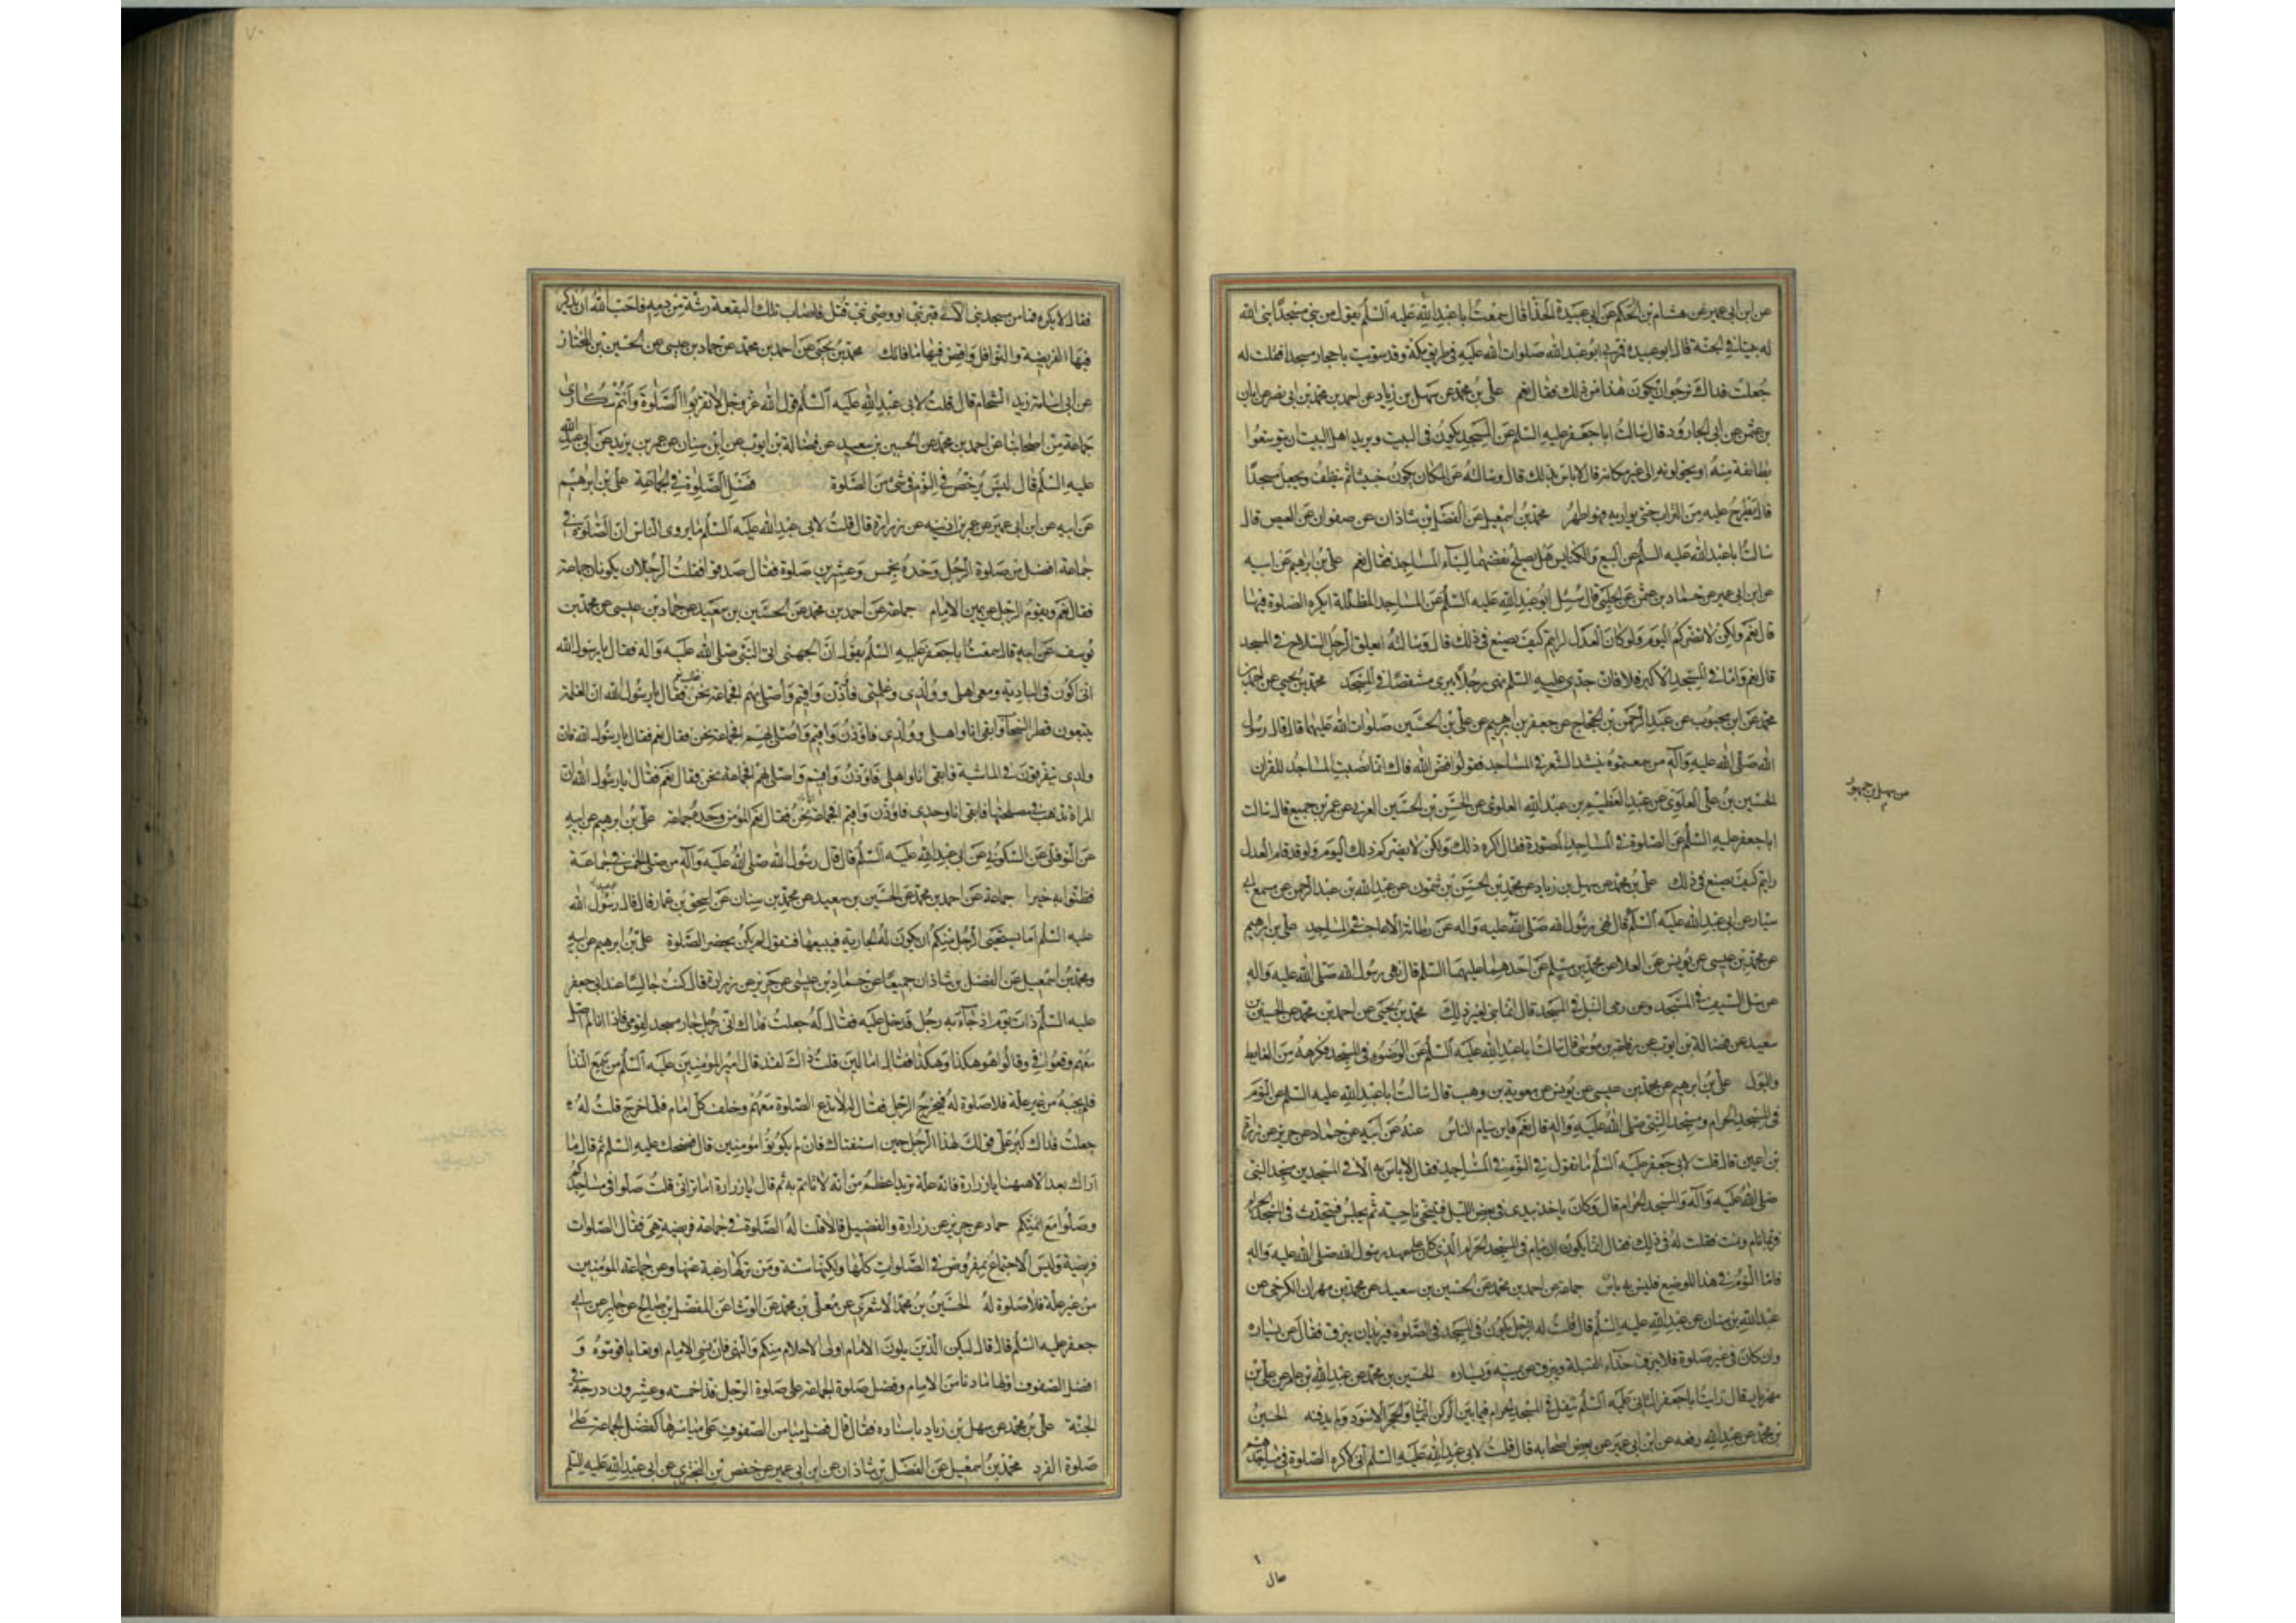 عن ابن ابى عمير عن هشام بن الحكم عن ابى عبيدة الحذا قال سمعت ابا عبد الله عليه السلم يقول من بنى مسجدا بنى الله
له بيتا فى الجنة قال ابو عبيدة فمر بى ابو عبد الله صلوات الله عليه فى طريق مكة وقد سويت باحجار مسجدا فقلت له
جعلت فداك نرجو ان يكون هذا من ذلك فقال نعم على بن محمد عن سهل بن زياد عن احمد بن محمد بن ابى نصر عن ابان
بن عثمن عن ابى الجارود قال سالت ابا جعفر عليه السلم عن المسجد يكون فى البيت ويريد اهل البيت ان يتوسعوا
بطائفة منه او يحولونه الى غير مكانه قال لا باس بذلك قال وسالته عن المكان يكون خبيثا ثم ينظف ويجعل مسجدا
قال يطرح عليه من التراب حتى يواريه فهو اطهر محمد بن اسمعيل عن الفضل بن شاذان عن صفوان عن العيص قال
سالت ابا عبد الله عليه السلم عن البيع والكنايس هل يصلح نقضهما لبناء المساجد فقال نعم على بن ابرهيم عن ابيه
عن ابن ابى عمير عن حماد بن عثمن عن الحلبى قال سئل ابو عبد الله عليه السلم عن المساجد المظللة ايكره الصلوة فيها
قال نعم ولكن لا يضركم اليوم ولو كان العدل لرايتم كيف يصنع فى ذلك قال وسالته ايعلق الرجل السلاح فى المسجد
قال نعم واما فى المسجد الاكبر فلا فان جدى عليه السلم نهى رجلا يبرى مشقصا فى المسجد محمد بن يحيى عن احمد بن
محمد عن ابن محبوب عن عبد الرحمن بن الحجاج عن جعفر بن ابرهيم عن على بن الحسين صلوات الله عليهما قال قال رسول
الله صلى الله عليه وآله من سمعتموه ينشد الشعر فى المساجد فقولوا فض الله فاك انما نصبت المساجد للقران
الحسين بن على العلوى عن عبد العظيم بن عبد الله العلوى عن الحسن بن الحسين العرنى عن عمرو بن جميع قال سالت
ابا جعفر عليه السلم عن الصلوة فى المساجد المصورة فقال اكره ذلك ولكن لا يضركم ذلك اليوم ولو قد قام العدل
رايتم كيف يصنع فى ذلك على بن محمد عن سهل بن زياد عن محمد بن الحسن بن شمون عن عبد الله بن عبد الرحمن عن مسمع ابى
سيار عن ابى عبد الله عليه السلم قال نهى رسول الله صلى الله عليه واله عن رطانة الاعاجم فى المساجد على بن ابرهيم
عن محمد بن عيسى عن يونس عن العلا عن محمد بن مسلم عن احدهما عليهما السلم قال نهى رسول الله صلى الله عليه واله
عن سل السيف فى المسجد وعن برى النبل فى المسجد قال انما بنى لغير ذلك محمد بن يحيى عن احمد بن محمد عن الحسين بن
سعيد عن فضالة بن ايوب عن رفاعة بن موسى قال سالت ابا عبد الله عليه السلم عن الوضوء فى المسجد فكرهه من الغايط
والبول على بن ابرهيم عن محمد بن عيسى عن يونس عن معوية بن وهب قال سالت ابا عبد الله عليه السلم عن النوم
فى المسجد الحرام ومسجد النبى صلى الله عليه واله قال نعم فاين ينام الناس عنه عن ابيه عن حماد عن حريز عن زرارة
بن اعين قال قلت لابى جعفر عليه السلم ما تقول فى النوم فى المساجد فقال لا باس به الا فى المسجدين مسجد النبى
صلى الله عليه وآله والمسجد الحرام قال وكان ياخذ بيدى فى بعض الليل فيتنحى ناحية ثم يجلس فيتحدث فى المسجد الحرام
فربما نام ونمت فقلت له فى ذلك فقال انما يكره ان ينام فى المسجد الحرام الذى كان على عهد رسول الله صلى الله عليه واله
فاما النوم فى هذا الموضع فليس به باس جماعة عن احمد بن محمد عن الحسين بن سعيد عن محمد بن مهران الكرخى عن
عبد الله بن سنان عن عبد الله عليه السلم قال قلت له الرجل يكون فى المسجد فى الصلوة فيريد ان يبزق فقال عن يساره
وان كان فى غير صلوة فلا يبزق حذاء القبلة ويبزق عن يمينه ويساره الحسين بن محمد عن عبد الله بن عامر عن على بن
مهزيار قال رايت ابا جعفر الثانى عليه السلم يتفل فى المسجد الحرام فيما بين الركن اليمانى والحجر الاسود ولم يدفنه الحسين
بن محمد عن عبد الله رفعه عن ابن ابى عمير عن بعض اصحابه قال قلت لابى عبد الله عليه السلم انى لاكره الصلوة فى مساجدهم
عن سهل بن جمهور
فقال لا تكره فما من مسجد بنى الا على قبر نبى او وصى نبى قتل فاصاب تلك البقعة رشة من دمه فاحب الله ان يذكر
فيها الفريضة والنوافل واقض فيها ما فاتك محمد بن يحيى عن احمد بن محمد عن حماد بن عيسى عن الحسين بن المختار
عن ابى اسامة زيد الشحام قال قلت لابى عبد الله عليه السلم قول الله عز وجل لا تقربوا الصلوة وانتم سكارى
جماعة من اصحابنا عن احمد بن محمد عن الحسين بن سعيد عن فضالة بن ايوب عن ابن سنان عن عمر بن يزيد عن ابى عبد الله
عليه السلم قال ليس يرخص فى النوم فى شئ من الصلوة فضل الصلوة فى الجماعة على بن ابرهيم
عن ابيه عن ابن ابى عمير عن عمر بن اذينه عن زرارة قال قلت لابى عبد الله عليه السلم ما يروى الناس ان الصلوة فى
جماعة افضل من صلوة الرجل وحده بخمس وعشرين صلوة فقال صدقوا فقلت الرجلان يكونان جماعة
فقال نعم ويقوم الرجل عن يمين الامام جماعة عن احمد بن محمد عن الحسين بن سعيد عن حماد بن عيسى عن محمد بن
يوسف عن ابيه قال سمعت ابا جعفر عليه السلم يقول ان الجهنى اتى النبى صلى الله عليه واله فقال يا رسول الله
انى اكون فى البادية ومعى اهلى وولدى وغلمتى فاذن واقيم واصلى بهم افجماعة نحن فقال نعم فقال يا رسول الله ان الغلمة
يتبعون قطر السحاب وابقى انا واهلى وولدى فاؤذن واقيم واصلى بهم افجماعة نحن فقال نعم فقال يا رسول الله فان
ولدى يتفرقون فى الماشية فابقى انا واهلى فاؤذن واقيم واصلى بهم افجماعة نحن فقال نعم فقال يا رسول الله ان
المراة تذهب فى مصلحتها فابقى انا وحدى فاؤذن واقيم افجماعة نحن فقال نعم المؤمن وحده جماعة على بن ابرهيم عن ابيه
عن النوفلى عن السكونى عن ابى عبد الله عليه السلم قال قال رسول الله صلى الله عليه وآله من صلى الخمس فى جماعة
فظنوا به خيرا جماعة عن احمد بن محمد عن الحسين بن سعيد عن محمد بن سنان عن اسحق بن عمار قال قال رسول الله
عليه السلم اما يستحيى الرجل منكم ان يكون له الجارية فيبيعها فتقول لم يكن يحضر الصلوة على بن ابرهيم عن ابيه
ومحمد بن اسمعيل عن الفضل بن شاذان جميعا عن حماد بن عيسى عن حريز عن زرارة قال كنت جالسا عند ابى جعفر
عليه السلم ذات يوم اذ جاءه رجل فدخل عليه فقال له جعلت فداك انى رجل جار مسجد لقومى فاذا انا لم اصل
معهم وقعوا فى وقالوا هو هكذا وهكذا فقال اما لئن قلت ذاك لقد قال امير المؤمنين عليه السلم من سمع النداء
فلم يجبه من غير علة فلا صلوة له فخرج الرجل فقال له لا تدع الصلوة معهم وخلف كل امام فلما خرج قلت له
جعلت فداك كبر على قولك لهذا الرجل حين استفتاك فان لم يكونوا مؤمنين قال فضحك عليه السلم ثم قال ما
اراك بعد الا ههنا يا زرارة فاية علة تريد اعظم من انه لا ياتم به ثم قال يا زرارة اما ترانى قلت صلوا فى مساجدكم
وصلوا مع ائمتكم حماد عن حريز عن زرارة والفضيل قالا قلنا له الصلوة فى جماعة فريضة هى فقال الصلوات
فريضة وليس الاجتماع بمفروض فى الصلوات كلها ولكنها سنة ومن تركها رغبة عنها وعن جماعة المؤمنين
من غير علة فلا صلوة له الحسين بن محمد الاشعرى عن معلى بن محمد عن الوشا عن المفضل بن صالح عن جابر عن ابى
جعفر عليه السلم قال قال ليكن الذين يلون الامام اولى الاحلام منكم والنهى فان نسى الامام او تعايا قوموه و
افضل الصفوف اولها مادنا من الامام وفضل صلوة الجماعة على صلوة الرجل فذا خمسه وعشرون درجة فى
الجنة على بن محمد عن سهل بن زياد باسناده فقال قال فضل ميامن الصفوف على مياسرها كفضل الجماعة على
صلوة الفرد محمد بن اسمعيل عن الفضل بن شاذان عن ابن ابى عمير عن حفص بن البخترى عن ابى عبد الله عليه السلم